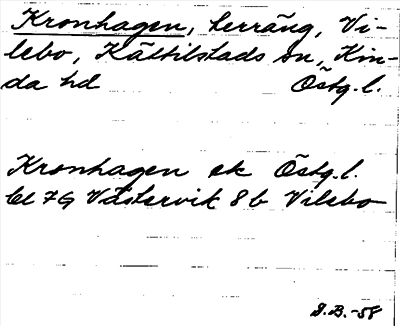 Kronhagen, terräng, Vi-
lebo, Kättilstads sn, Kin-
da hd Östg.l.
Kronhagen ek Östg.l.
bl 7G Västervik 8b Vilebo
J.B.-58